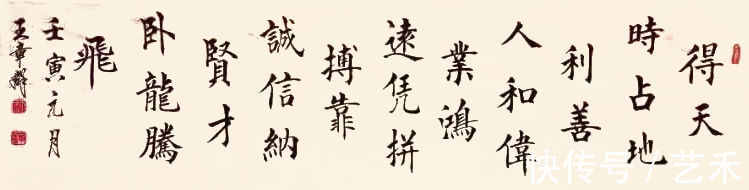 得天
時占地
利善
人和偉
業鴻
遠凭拼
搏靠
誠信納
賢才
卧龍騰
飛
壬寅元月
王
快传号 / 艺禾